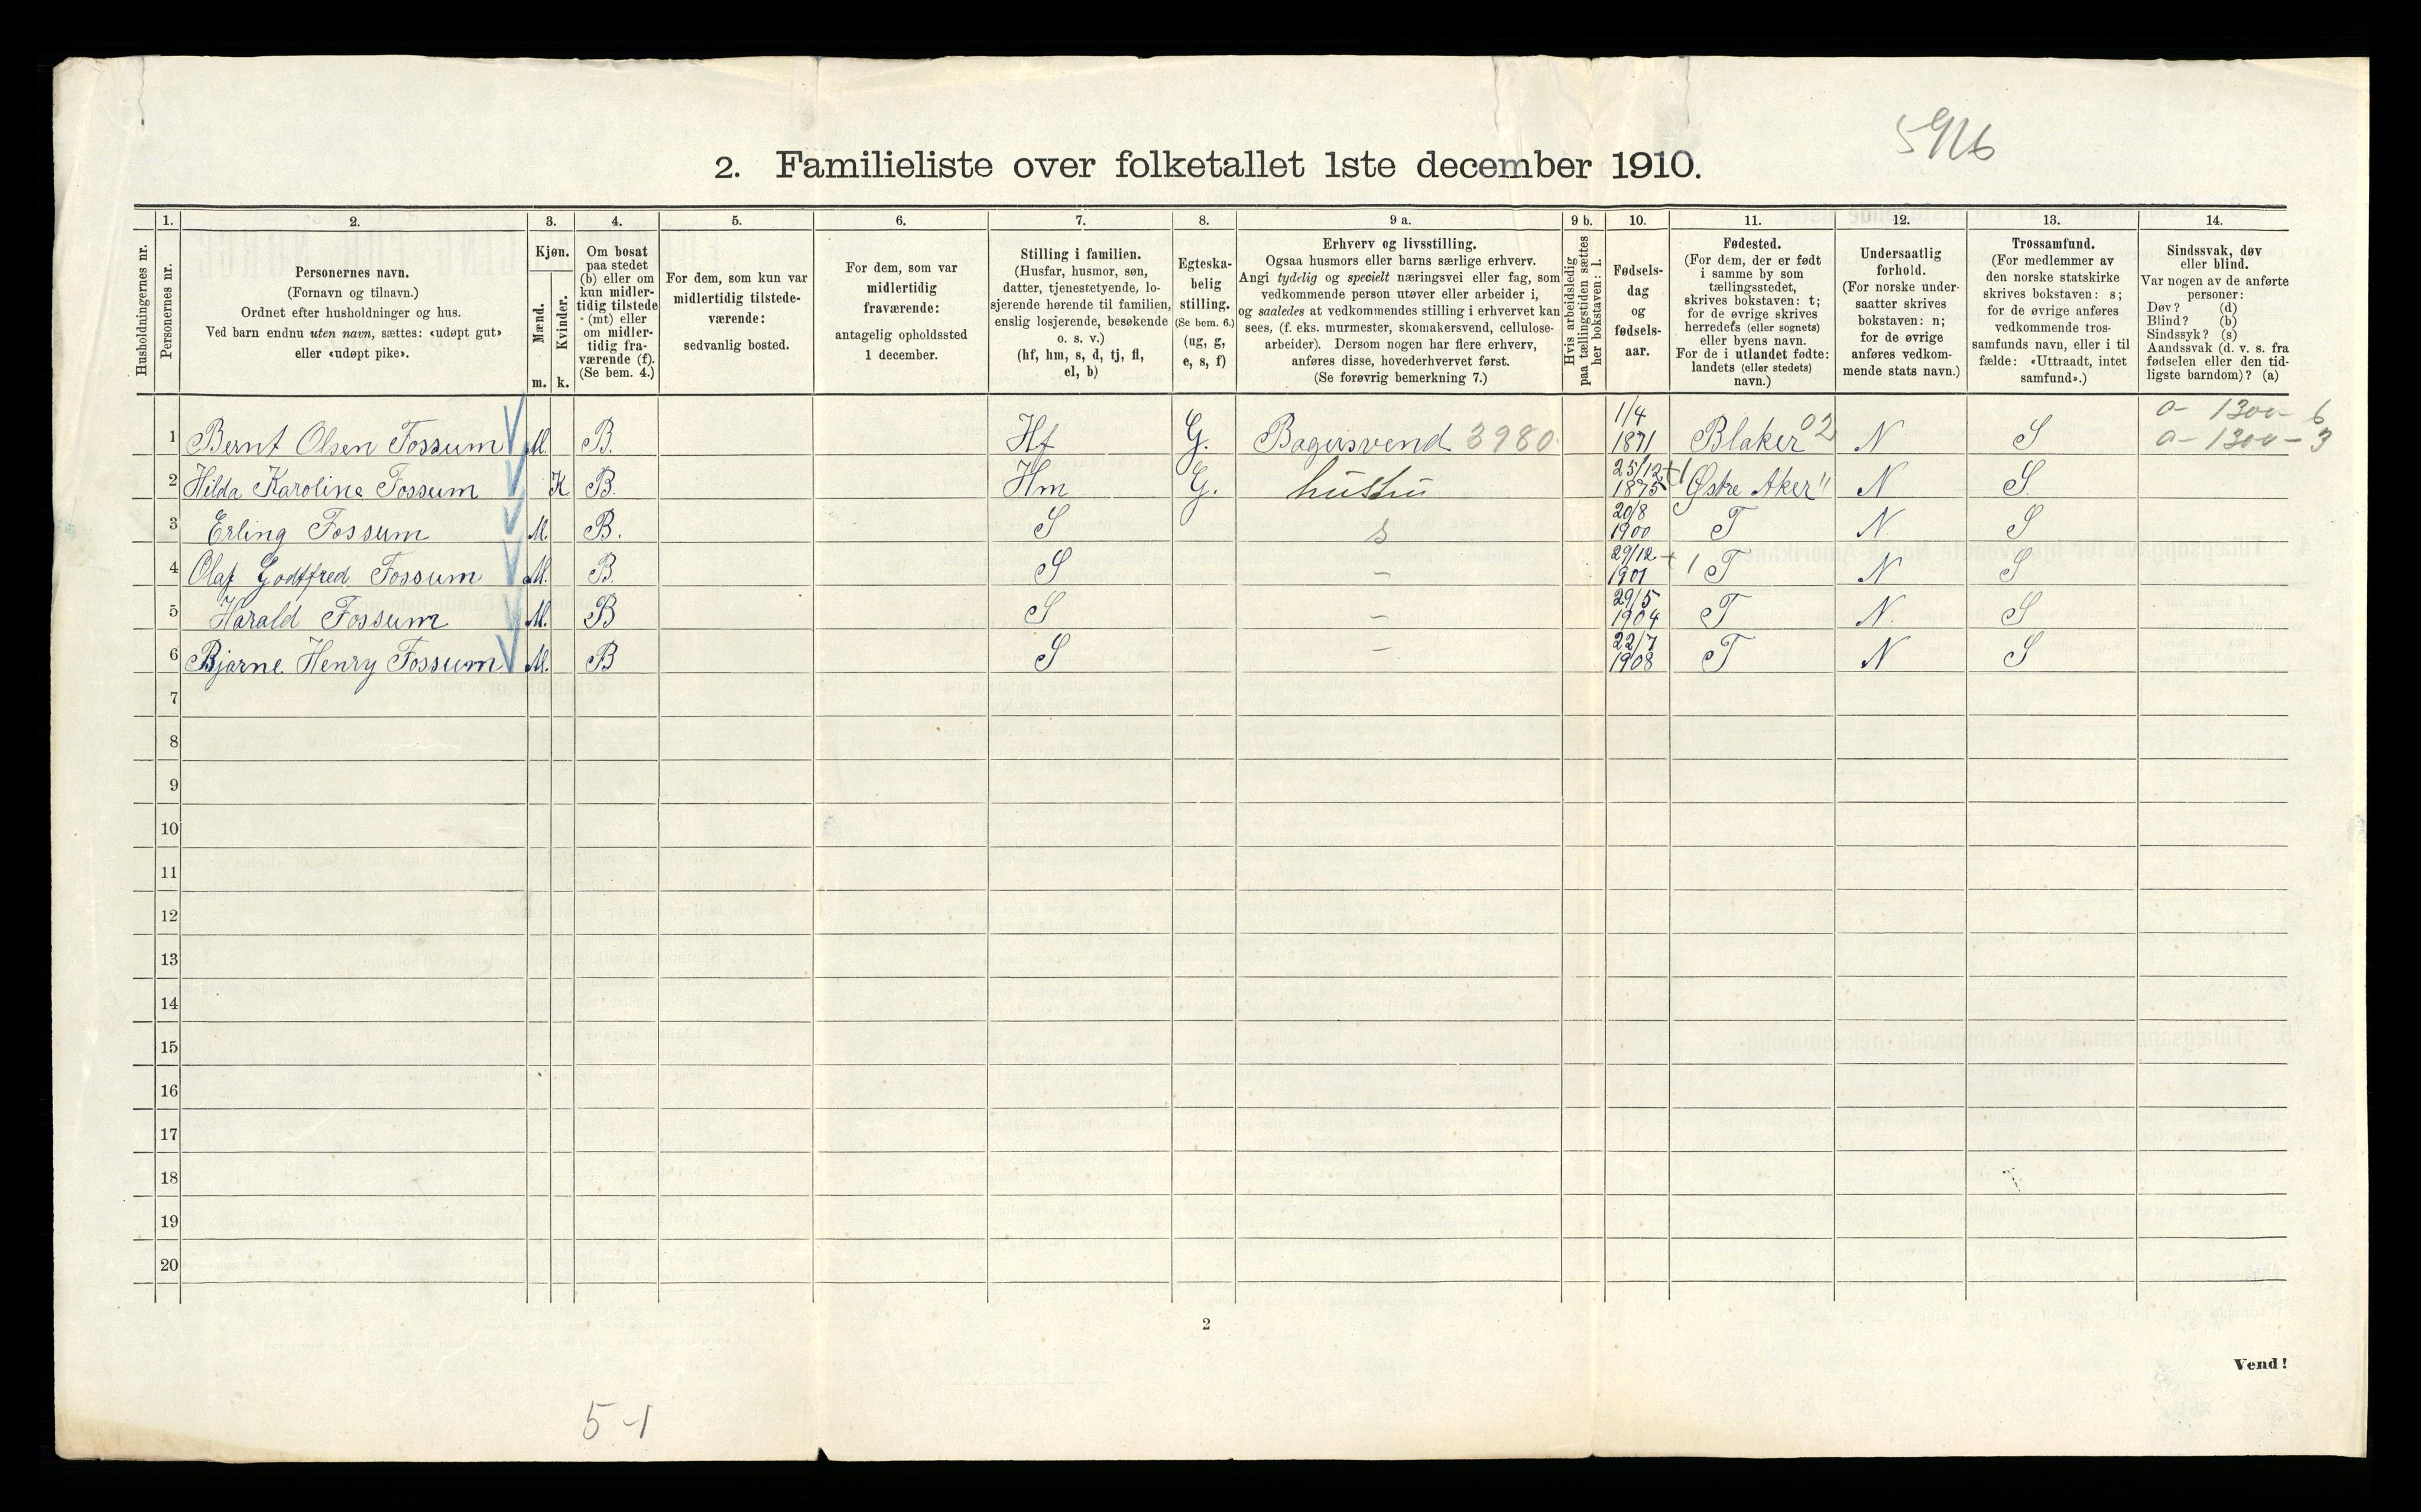 5916
2. Familieliste over folketallet 1ste december 1910.
Husholdningernes nr.
1. Personernes nr.
2. Personernes navn.
(Fornavn og tilnavn.)
Ordnet efter husholdninger og hus.
Ved barn endnu uten navn, sættes: «udøpt gut»
eller «udøpt pike».
3. Kjøn.
Mænd. m.
Kvinder. k.
4. Om bosat
paa stedet
(b) eller om
kun midler-
tidig tilstede
(mt) eller
om midler-
tidig fra-
værende (f).
(Se bem. 4.)
5. For dem, som kun var
midlertidig tilstede-
værende:
sedvanlig bosted.
6. For dem, som var
midlertidig
fraværende:
antagelig opholdssted
1 december.
7. Stilling i familien.
(Husfar, husmor, søn,
datter, tjenestetyende, lo-
sjerende hørende til familien,
enslig losjerende, besøkende
o. s. v.)
(hf, hm, s, d, tj, fl,
el, b)
8. Egteska-
belig
stilling.
(Se bem. 6.)
(ug, g,
e, s, f)
9 a. Erhverv og livsstilling.
Ogsaa husmors eller barns særlige erhverv.
Angi tydelig og specielt næringsvei eller fag, som
vedkommende person utøver eller arbeider i,
og saaledes at vedkommendes stilling i erhvervet kan
sees, (f. eks. murmester, skomakersvend, cellulose-
arbeider). Dersom nogen har flere erhverv,
anføres disse, hovederhvervet først.
(Se forøvrig bemerkning 7.)
9 b. Hvis arbeidsledig
paa tællingstiden sættes
her bokstaven: l.
10. Fødsels-
dag
og
fødsels-
aar.
11. Fødested.
(For dem, der er født
i samme by som
tællingsstedet,
skrives bokstaven: t;
for de øvrige skrives
herredets (eller sognets)
eller byens navn.
For de i utlandet fødte:
landets (eller stedets)
navn.)
12. Undersaatlig
forhold.
(For norske under-
saatter skrives
bokstaven: n;
for de øvrige
anføres vedkom-
mende stats navn.)
13. Trossamfund.
(For medlemmer av
den norske statskirke
skrives bokstaven: s;
for de øvrige anføres
vedkommende tros-
samfunds navn, eller i til
fælde: «Uttraadt, intet
samfund».)
14. Sindssvak, døv
eller blind.
Var nogen av de anførte
personer:
Døv? (d)
Blind? (b)
Sindssyk? (s)
Aandssvak (d. v. s. fra
fødselen eller den tid-
ligste barndom)? (a)
1 Bernt Olsen Fossum M. B. Hf G. Bagersvend 3980 1/4 1871 Blaker 02 N S 0- 1300- 6
0- 1300- 3
2 Hilda Karoline Fossum K B. Hm G. hustru 25/12 1875 Østre Aker " N S
3 Erling Fossum M. B. S s 20/8 1900 T N. S
4 Olaf Godtfred Fossum M. B. S - 29/12 1901 T N S
5 Harald Fossum M. B S - 29/5 1904 T N. S
6 Bjarne Henry Fossum M. B S - 22/7 1908 T N S
7
8
9
10
11
12
13
14
15
16
17
18
19
20
2
Vend!
5-1